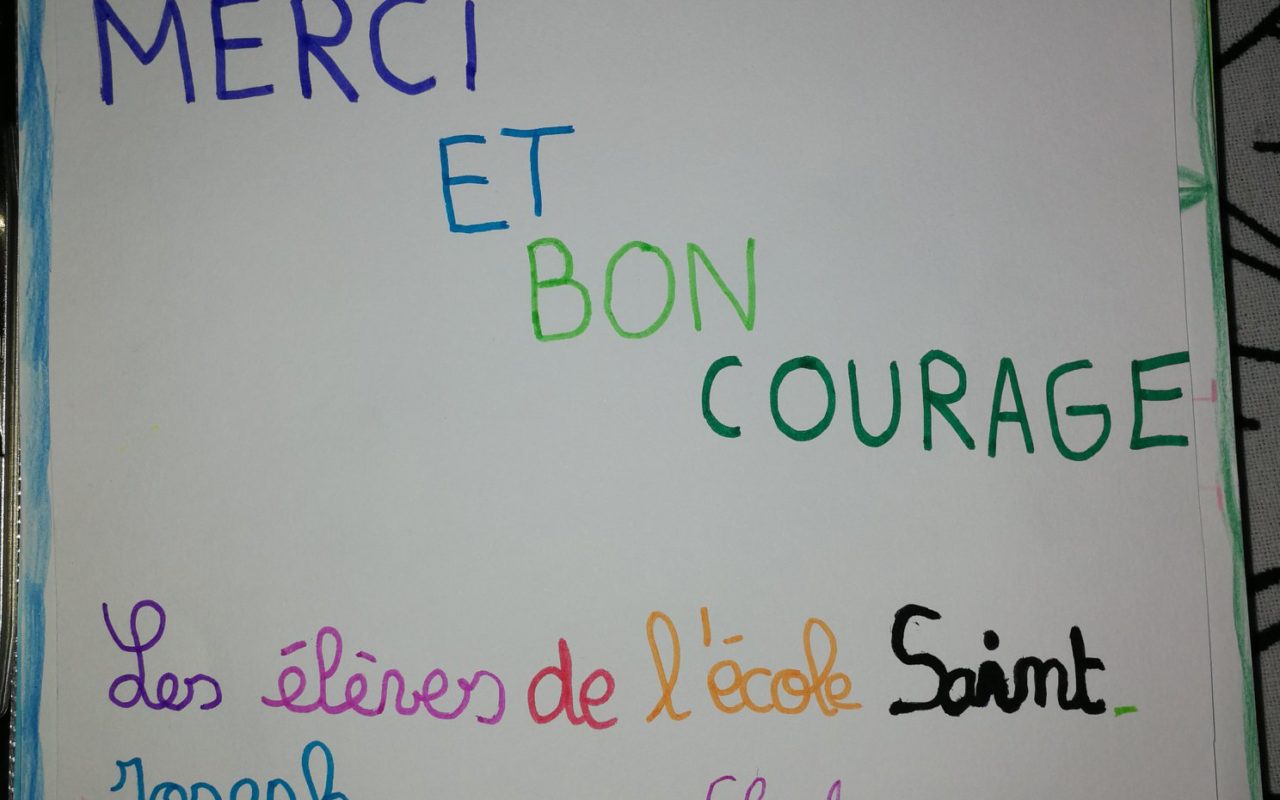 MERCI
ET
BON
COURAGE
Les élèves de l'école Saint-
Joseph